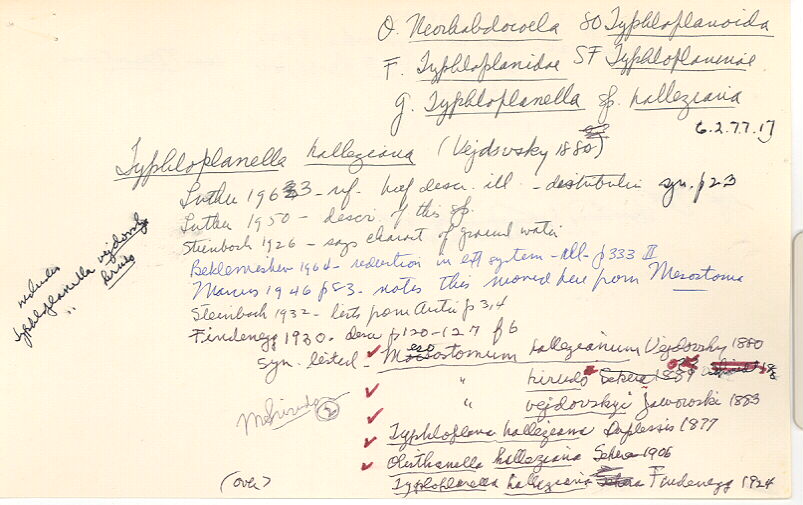 O. Neorhabdocoela SO Typhloplanoida
F. Typhloplanidae SF Typhloplaninae
g. Typhloplanella sp. halleziana
6.2.77.17
Typhloplanella halleziana (Vejdovsky 1880)
Luther 1963 - ref. brief descr. ill. - distribution syn. p 23
Luther 1950 - descr. of this sp.
Steinbock 1926 - says charact. of ground water
Beklemishev 1964 - reduction in ex system - all - p 333 II
Marcus 1946 p 83 - notes this moved here from Mesostoma
Steinbock 1932 - lists from p 3,4
Findenegg 1930 - descr p 120-127 f 6
syn. listed - Mesostomum hallezianum Vejdovsky 1880
" hirudo
" vejdovskyi Jaworoski 1883
Typhloplana halleziana Duplessis 1877
Olisthanella halleziana Sekera 1906
Typhloplanella halleziana Findenegg 1924
includes
Typhloplanella vejdovskyi
" hirudo
M. hirudo (2)
(over)